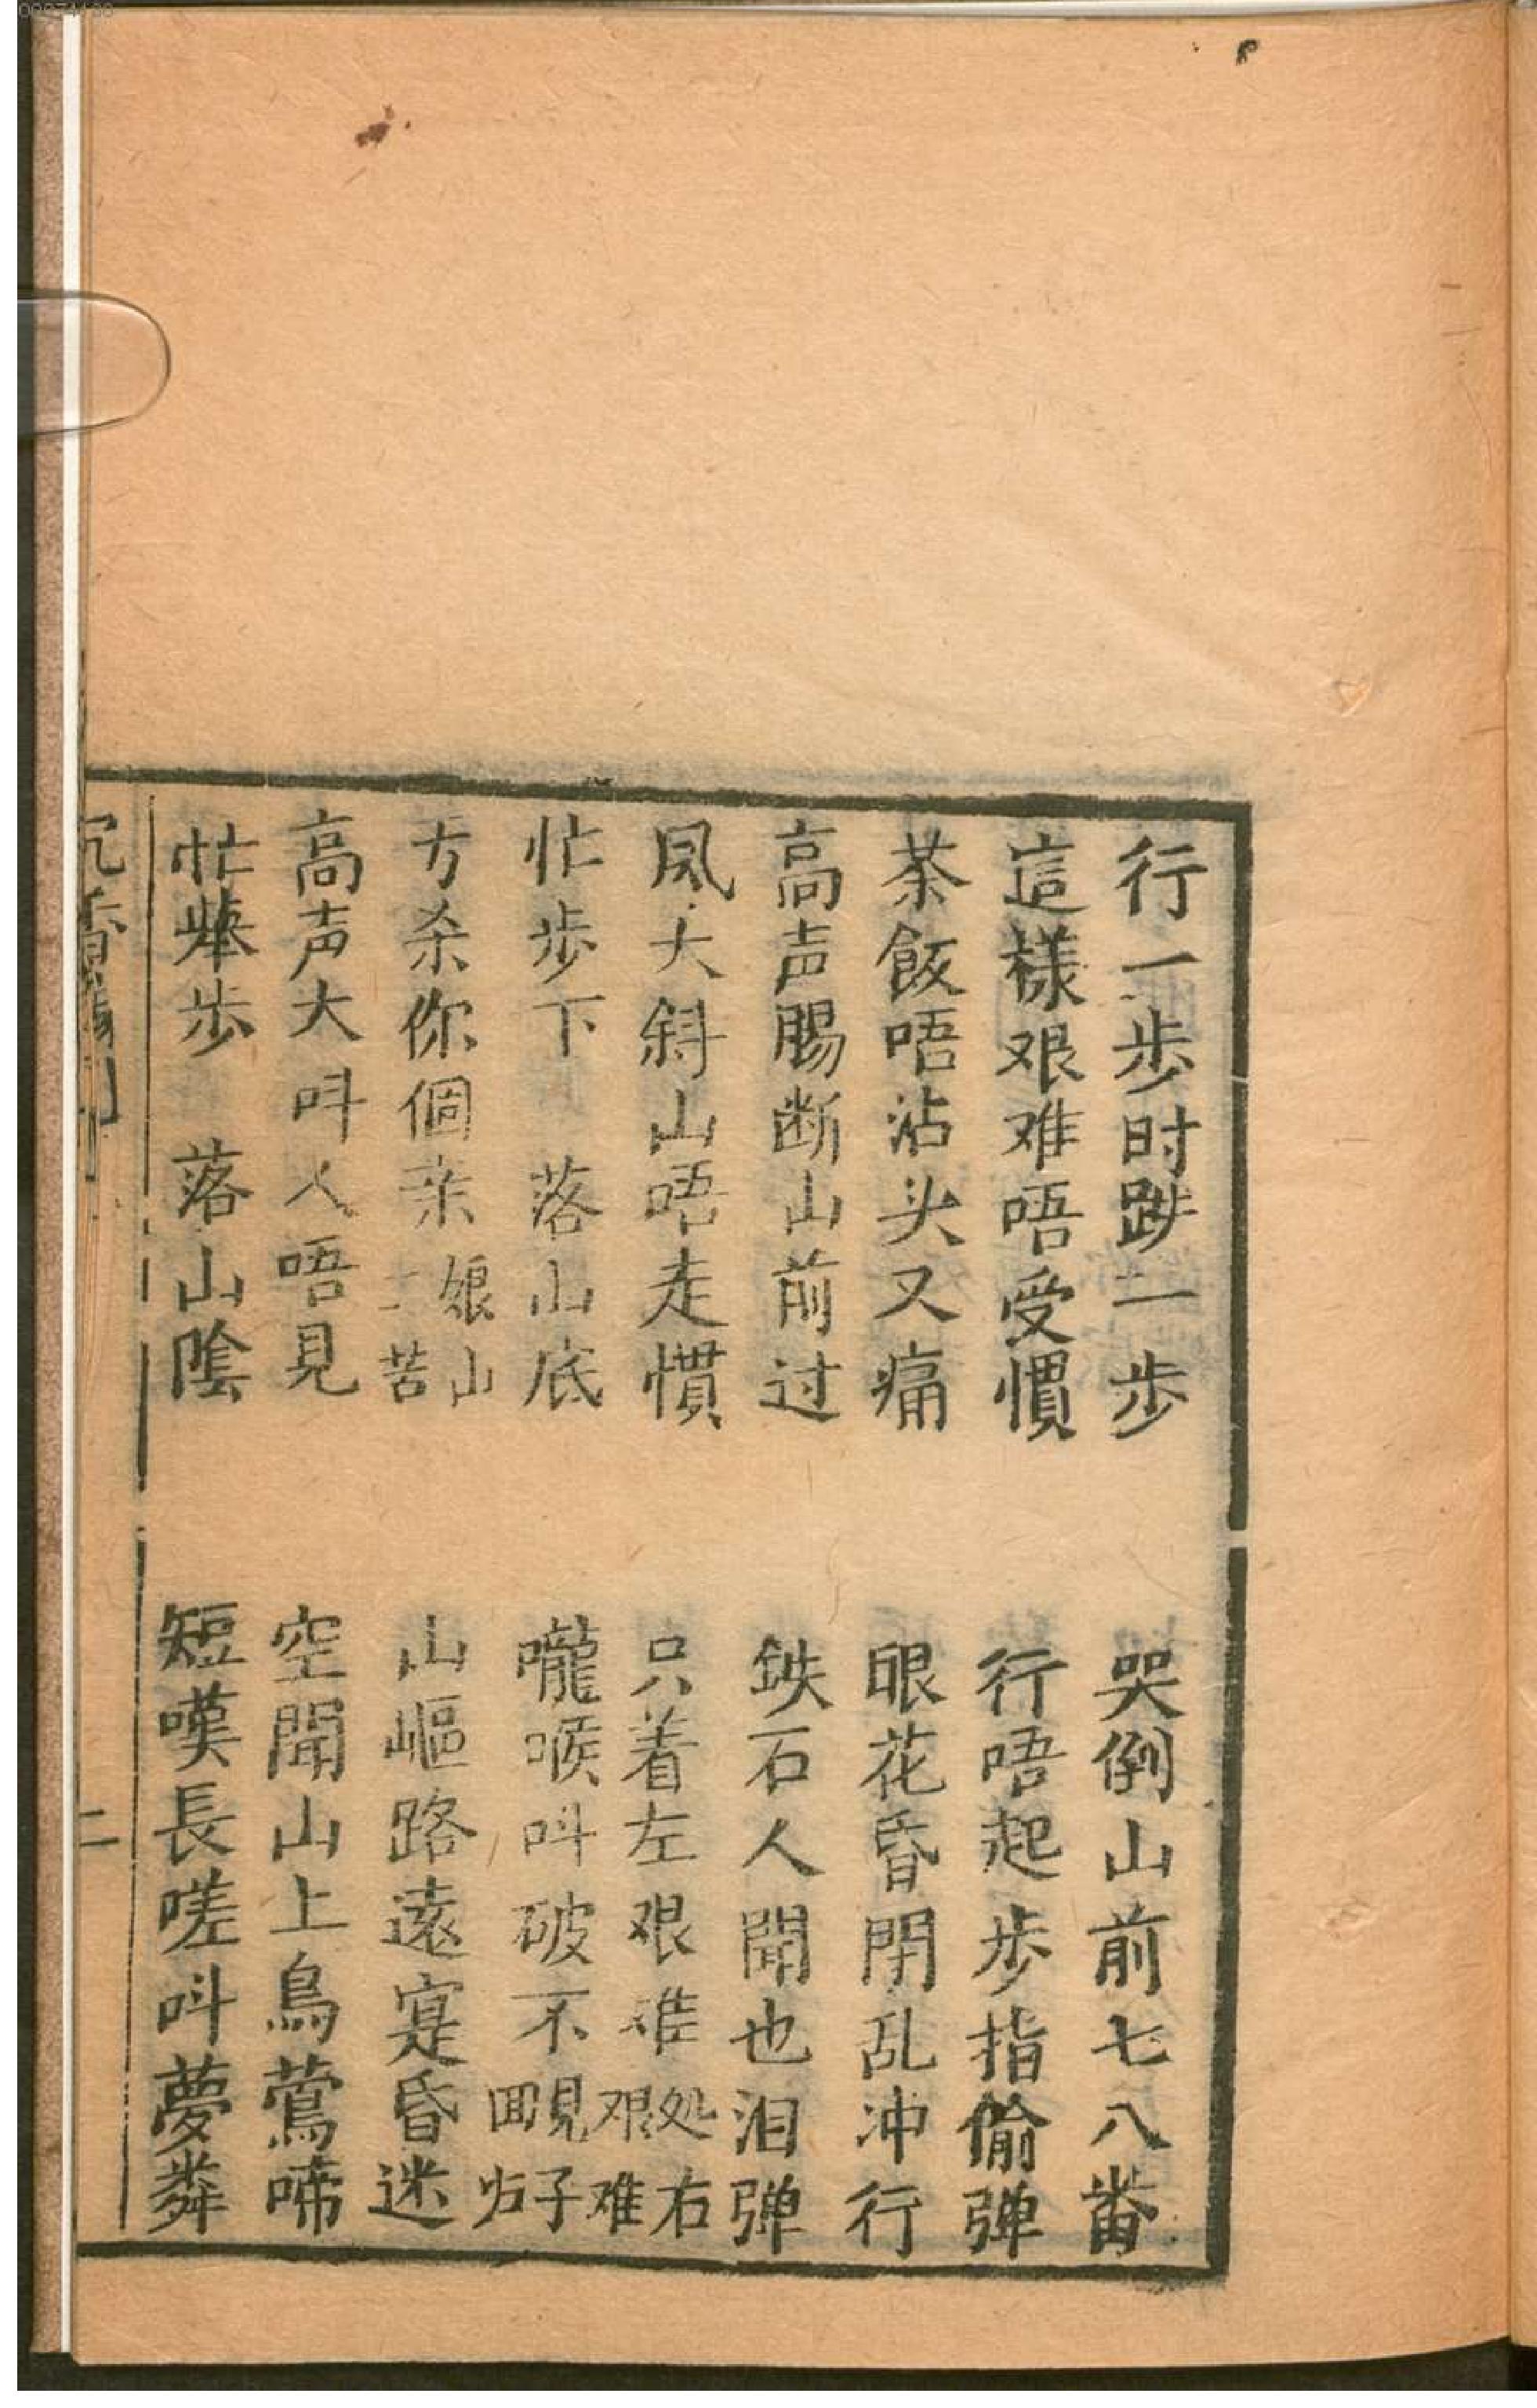 行一步时跌二步 哭倒山前七八畨
這樣艰难唔受慣 行唔起步指偷弹
茶飯唔沾头又痛 眼花昏閉乱冲行
高声腸断山前过 鉄石人聞也泪弹
風大斜山唔走慣 只着左艰难处右艰难
忙步下 落山底 嚨喉呌破不見子囬归
方杀你個亲娘山二苦 山嶇路遠寔昏迷
高声大呌人唔見 空聞山上鳥鶯啼
忙举步 落山陰 短嘆長嗟呌夢粦
二